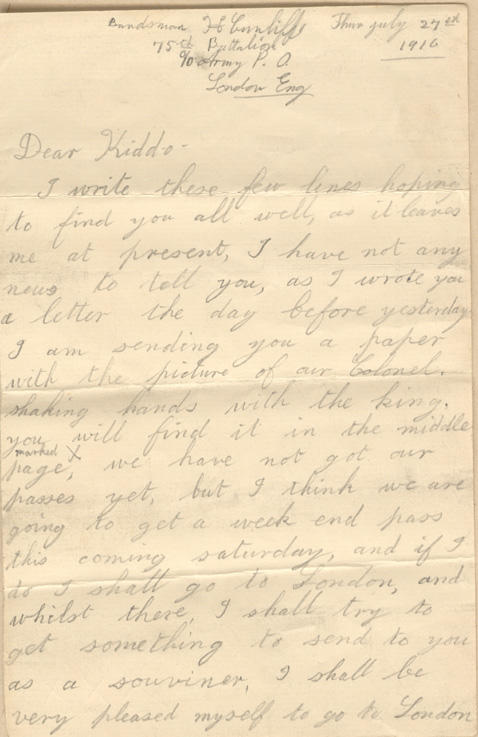 Bandsman H Cunliffe Thur july 27th
75th Battalion 1916
c/o Army P. O.
London Eng
Dear Kiddo-
I write these few lines hoping
to find you all well, as it leaves
me at present, I have not any
news to tell you, as I wrote you
a letter the day before yesterday
I am sending you a paper
with the picture of our Colonel.
shaking hands with the king.
you will find it in the middle
marked X
page, we have not got our
passes yet, but I think we are
going to get a week end pass
this coming saturday, and if I
do I shall go to London, and
whilst there I shall try to
get something to send to you
as a souviner, I shall be
very pleased myself to go to London